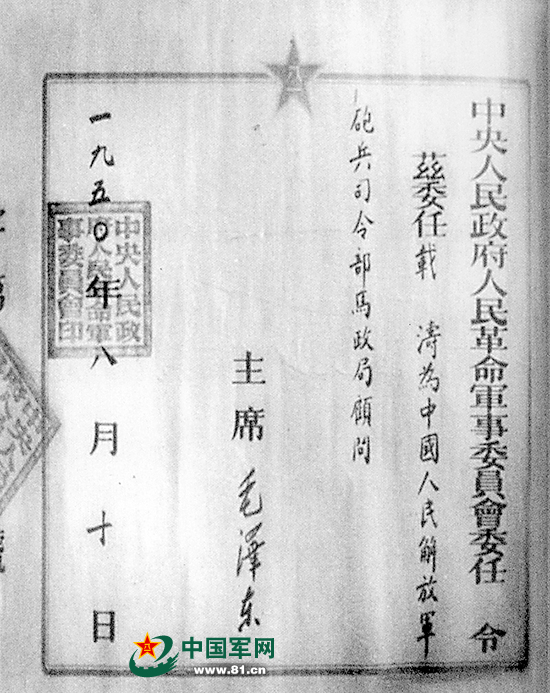 中央人民政府人民革命軍事委員會委任令
茲委任載濤為中國人民解放軍
砲兵司令部馬政局顧問
主席 毛澤东
一九五〇年八月十日
中央人民政
府人民革命軍
事委員會印
八一
中国军网
www.81.cn